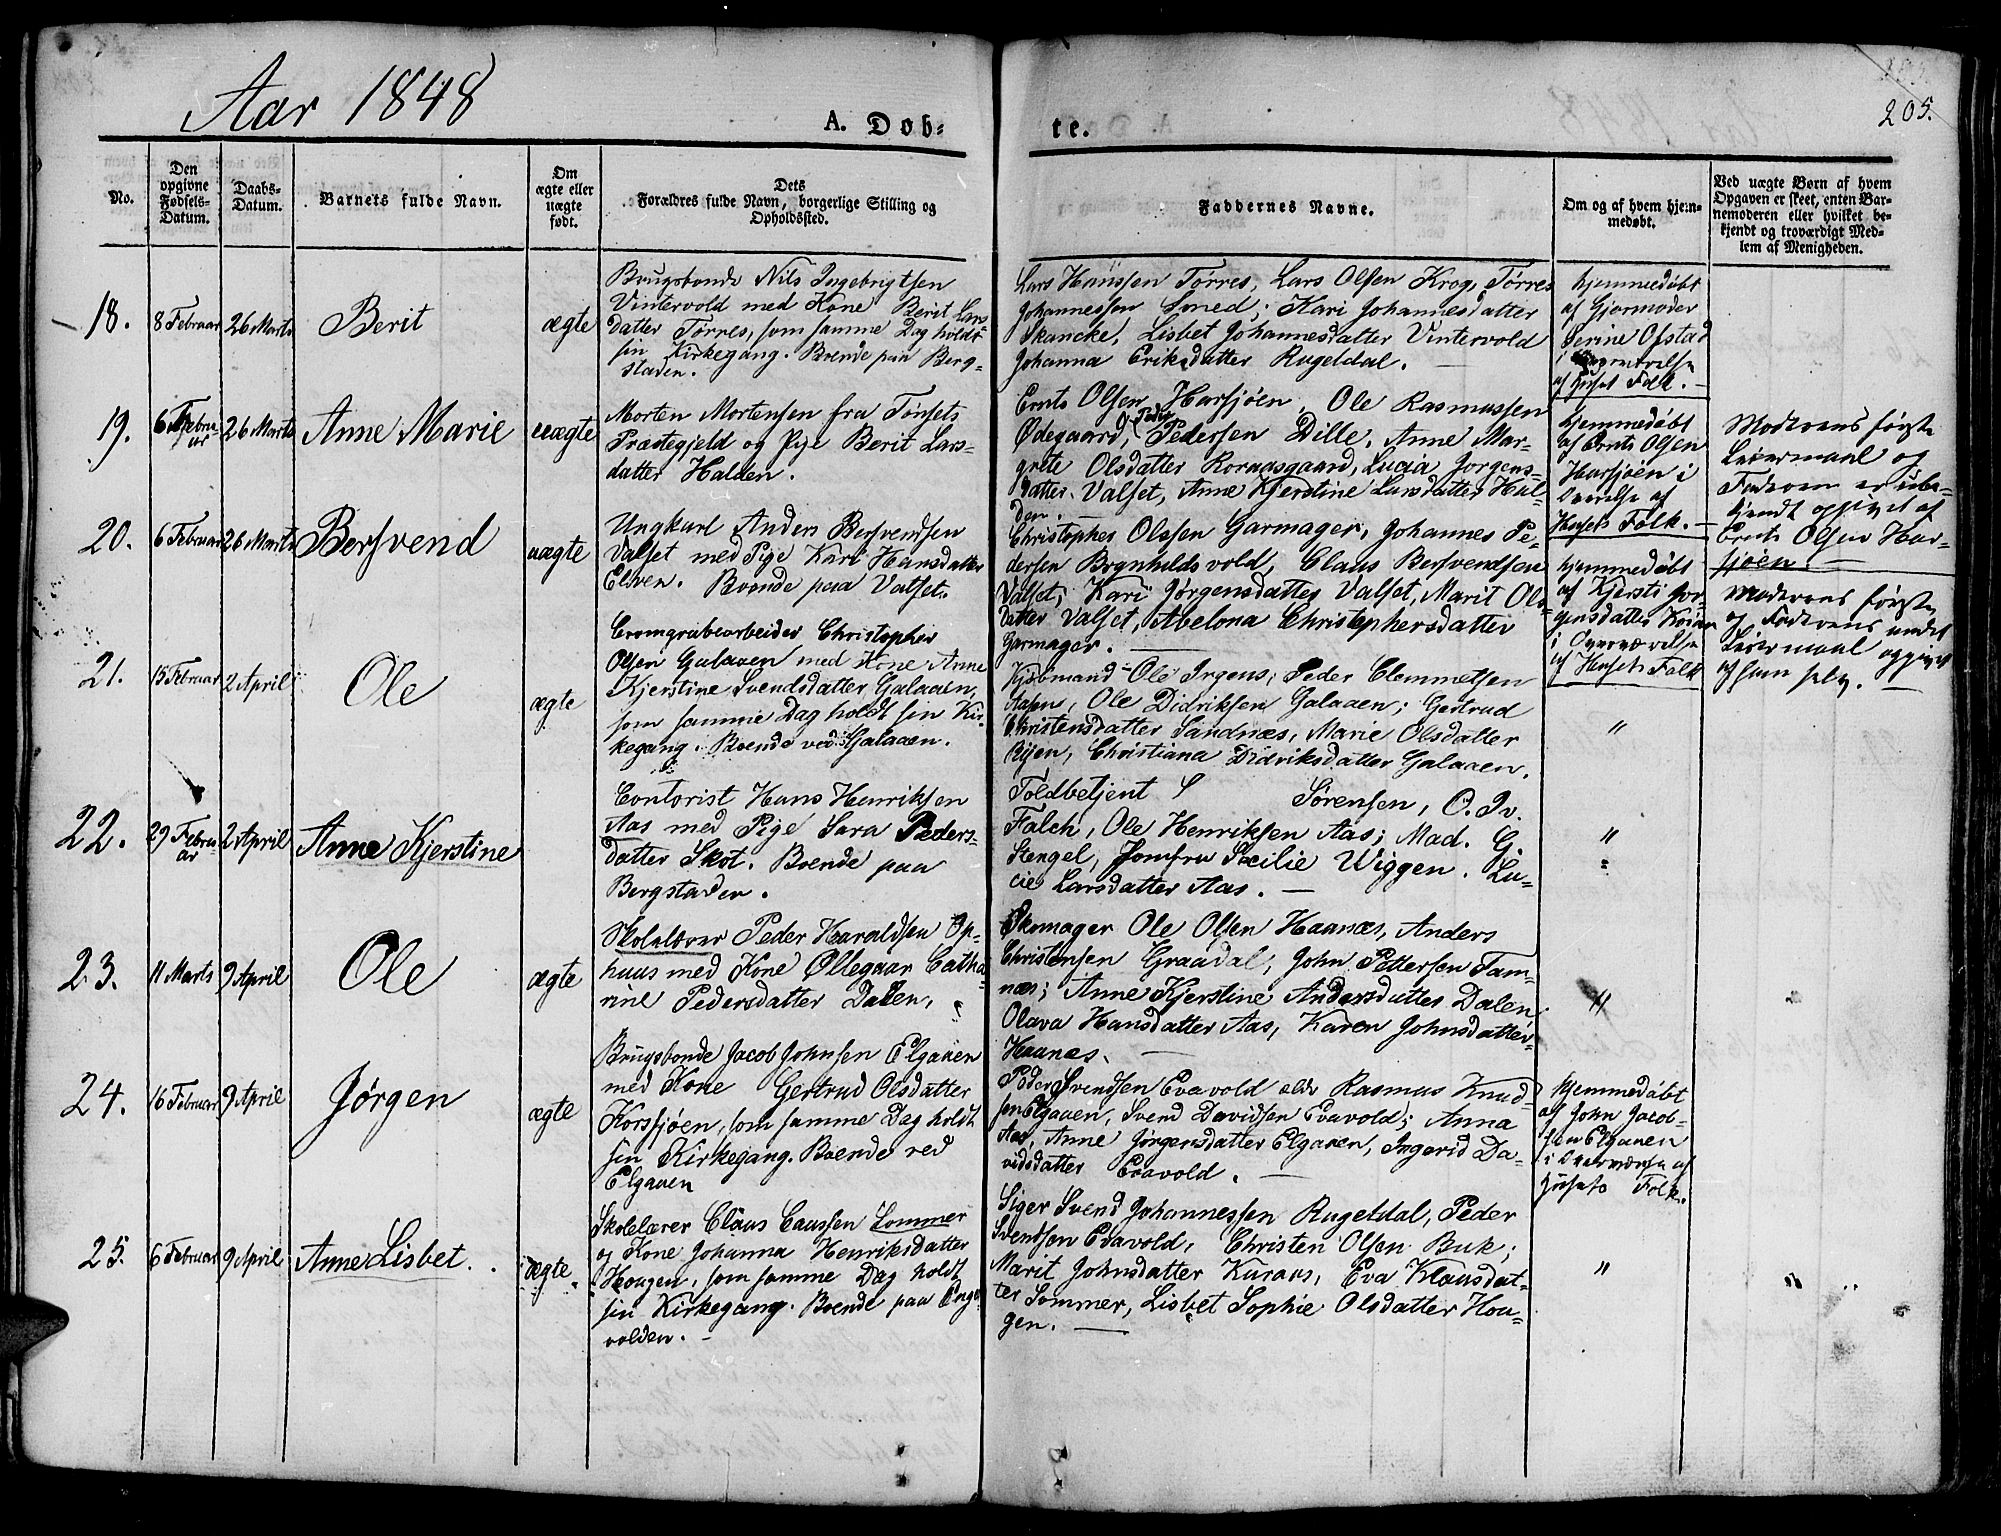 Aar 1848
A. Dob-
te.
205.
No.
Den
opgivne
Fødsels-
Datum.
Daabs-
Datum.
Barnets fulde Navn.
Om
ægte eller
uægte
født.
Dets
Forældres fulde Navn, borgerlige Stilling og
Opholdssted.
Faddernes Navne.
Om og af hvem hjem-
medøbt.
Ved uægte Børn af hvem
Opgaven er skeet, enten Bar-
nemoderen eller hvilket be-
kjendt og troværdigt Med-
lem af Menigheden.
18.
8 Februar
26 Marts
Berit
ægte
Brugsbonde Nils Ingebrigtsen
Vintervold med Kone Berit Lars
datter Tørres, som samme Dag holdt
sin Kirkegang. Boende paa Berg-
staden.
Lars Hanssen Tørres, Lars Olsen Krog, Tørres
Johannessen Smed; Kari Johannesdatter
Skancke, Lisbet Johannesdatter Vintervold
Johanna Eriksdatter Rugeldal. —
hjemmedøbt
af Gjormoder
Serine Ofstad
i Overværelse
af Huset Folk. —
19.
6 Febru-
ar
26 Marts
Anne Marie
uægte
Morten Mortensen fra Tønsets
Præstegjeld og Pige Berit Lars-
datter Halden.
Ernts Olsen Harsjøen, Ole Rasmussen
Ødegaard, Peder
Pedersen Dille, Anne Mar-
grete Olsdatter Kornasgaard, Lucia Jorgens-
datter Valset, Anne Kjerstine Larsdatter Hal-
den. —
hjemmedøbt
af Ernts Olsen
Harsjøen i
Overelse af
Husets Folk. —
Moderens første
Leiermaal og
Faderen er ube-
kjendt opgivet af
Ernts Olsen Har-
sjøen. —
20.
6 Februar
26 Marts
Bersvend
uægte
Ungkarl Anders Bersvendsen
Valset med Pige Kari Hansdatter
Elven. Boende paa Valset.
Christopher Olssen Garmager, Johannes Pe-
dersen Brynhildsvold, Claus Bersvendsen
Valset; Kari Jørgensdatter Valset, Marit Ols-
datter Valset, Abelona Christophersdatter
Garmager. —
hjemmedøbt
af Kjersti Jor-
gensdatter Koien
i Overværelse
af Husets Folk
Moderens første
og Faderens andet
Leiermaal opgivet
af ham selv. —
21.
15 Februar
2 April
Ole
ægte
Cromgrubearbeider Christopher
Olsen Galaaen med Kone Anne
Kjerstine Svendsdatter Galaaen,
som samme Dag holdt sin Kir-
kegang. Boende ved Galaaen.
Kjøbmand Ole Irgens, Peder Clemmetsen
Aasen, Ole Didriksen Galaaen; Gertrud
Christensdatter Sandnæs, Marie Olsdatter
Rijen, Christiana Didriksdatter Galaaen.
"
22.
29 Febru-
ar
2 April
Anne Kjerstine
Contorist Hans Henriksen
Aas med Pige Sara Peders-
datter Skot. Boende paa
Bergstaden.
Toldbetjent S Sørensen, O. Iv.
Falch, Ole Henriksen Aas; Mad. G.
Stengel, Jomfru Sæcilie Wiggen. Lu-
cie Larsdatter Aas. —
"
23.
11 Marts
9 April
Ole
ægte
Skolelærer Peder Haraldsen Op-
huus med Kone Øllegaar Catha-
rine Pedersdatter Dalen,
Skomager Ole Olsen Haanæs, Anders
Christensen Graadal, John Pettersen Tam-
næs; Anne Kjerstine Andersdatter Dalen
Olava Hansdatter Aas, Karen Johnsdatter
Haanæs. —
"
24.
16 Februar
9 April
Jørgen
ægte
Brugsbonde Jacob Johnsen Elgaaen
med Kone Gertrud Olsdatter
Korssjøen, som samme Dag holdt
sin Kirkegang. Boende ved
Elgaaen
Peder Svendsen Evavold eldr Rasmus Knud-
sen Elgaaen, Svend Davidsen Evavold; Anna
Aas, Anne Jørgensdatter Elgaaen, Ingerid Da-
vidsdatter Evavold. —
hjemmedøbt
af John Jacob-
sen Elgaaen
i Overværelse af
Husets Folk.
25.
6 Februar
9 April
Anne Lisbet.
ægte
Skolelærer Claus Caussen Sommer
og Kone Johanna Henriksdatter
Hougen, som samme Dag holdt
sin Kirkegang. Boende paa Enge
volden. —
Siger Svend Johannessen Rugeldal, Peder
Svendsen Evavold, Christen Olsen Buk;
Marit Johnsdatter Kuraas, Eva Klausdat-
ter Sommer, Lisbet Sophie Olsdatter Hou-
gen. —
"